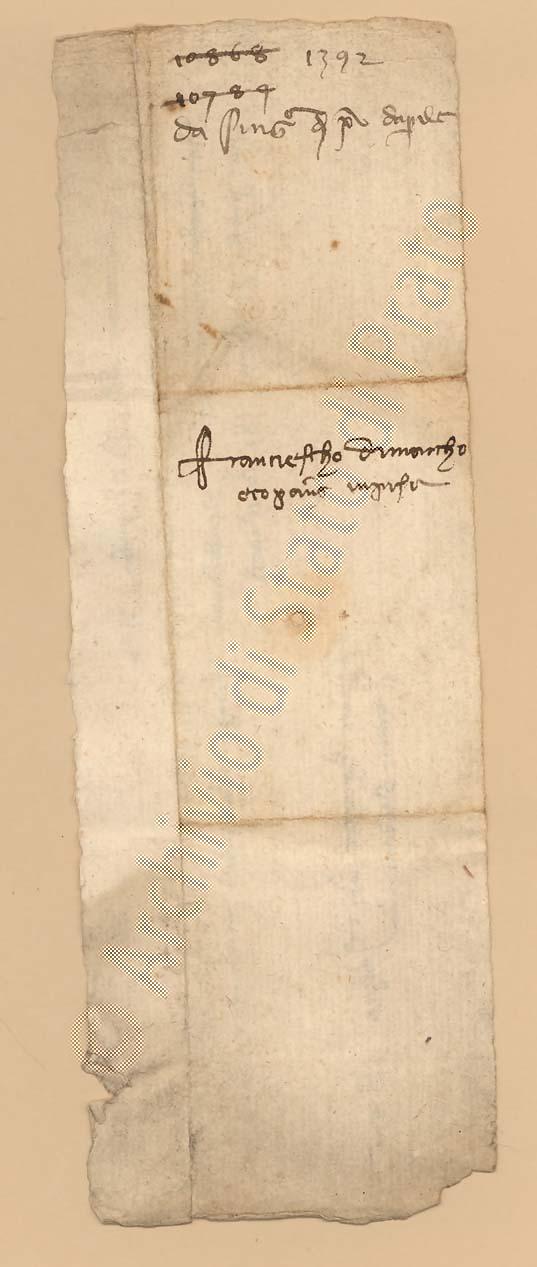 10868 1392
10784
da sing° dì p° daprile
Franciescho dimarcho
ecopangi inpisa
© Archivio di Stato di Prato